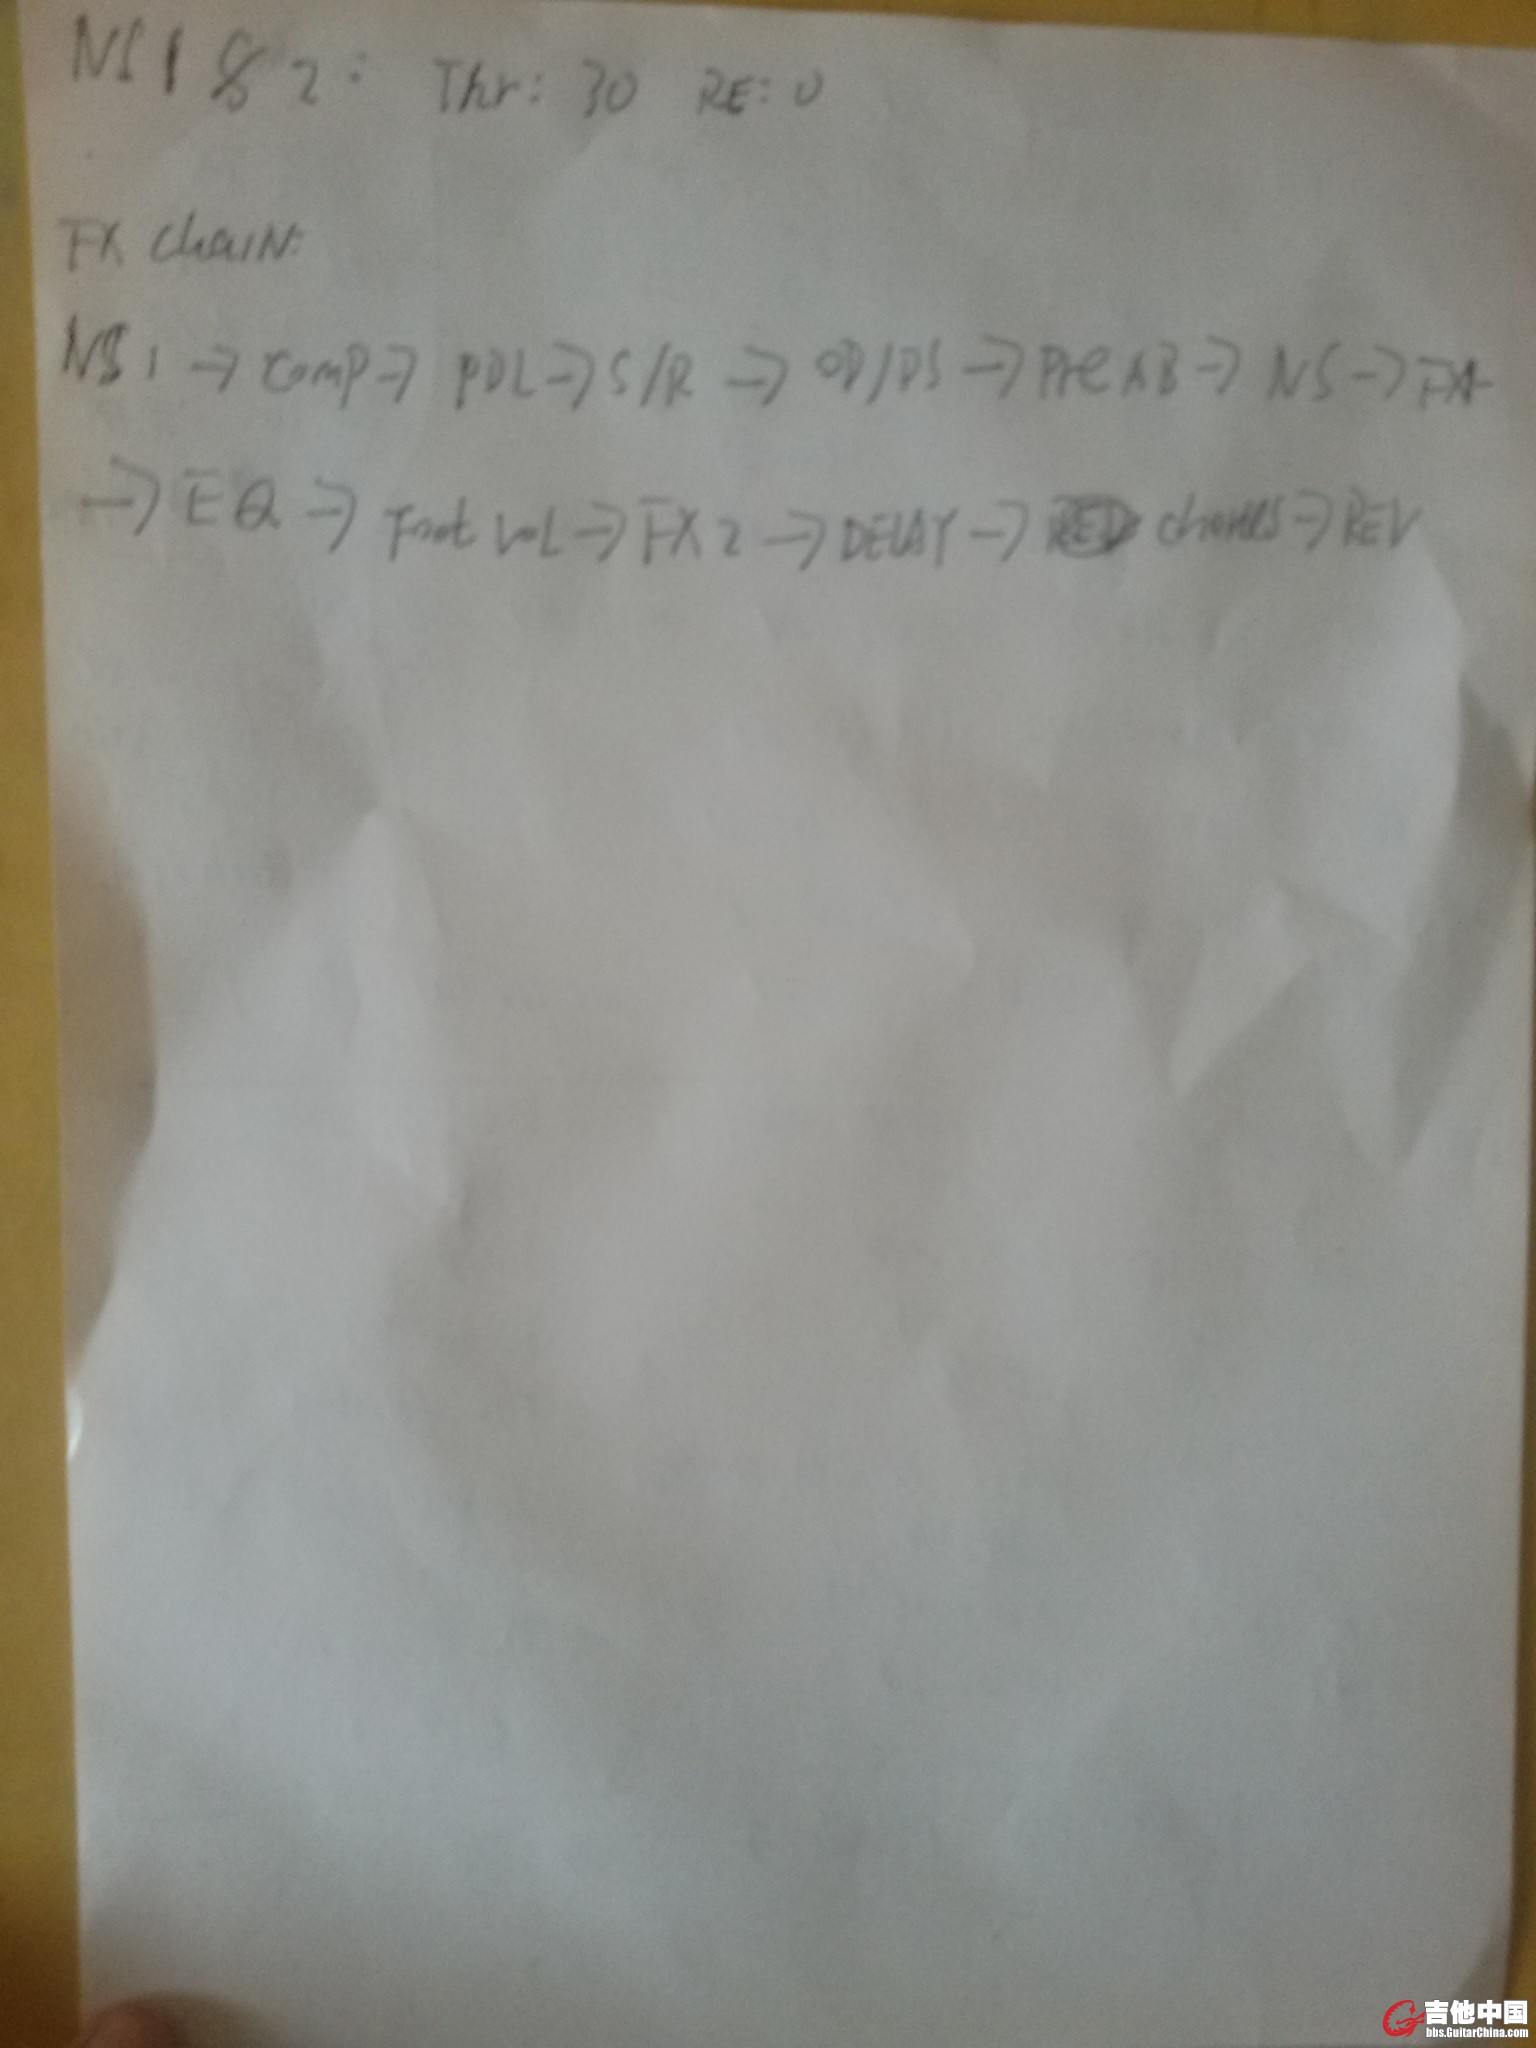 NS 1 & 2: Thr: 30 RE: 0
FX chaiN:
NS1 → comP → PDL → S/R → OD/DS → Pre AB → NS → FX
→ EQ → Foot voL → FX2 → DELAY → chorus → REV
吉他中国
bbs.GuitarChina.com